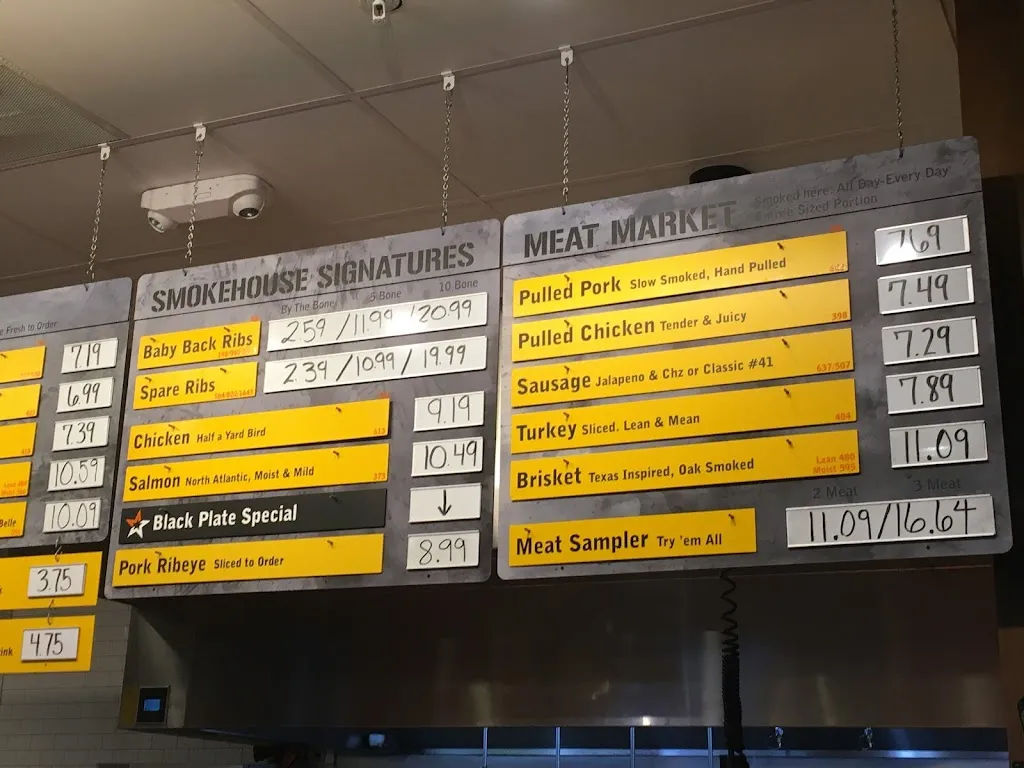 e Fresh to Order
7.19
6.99
7.39
10.59
Belle 10.09
3.75
ink 4.75
SMOKEHOUSE SIGNATURES
By The Bone 5 Bone 10 Bone
Baby Back Ribs 2.59 / 11.99 / 20.99
Spare Ribs 2.39 / 10.99 / 19.99
Chicken Half a Yard Bird 9.19
Salmon North Atlantic, Moist & Mild 10.49
Black Plate Special ↓
Pork Ribeye Sliced to Order 8.99
MEAT MARKET
Smoked here. All Day-Every Day
Entree Sized Portion
Pulled Pork Slow Smoked, Hand Pulled 7.69
Pulled Chicken Tender & Juicy 398 7.49
Sausage Jalapeno & Chz or Classic #41 637/507 7.29
Turkey Sliced. Lean & Mean 404 7.89
Brisket Texas Inspired, Oak Smoked Lean 480 Moist 595 11.09
2 Meat 3 Meat
Meat Sampler Try 'em All 11.09/16.64